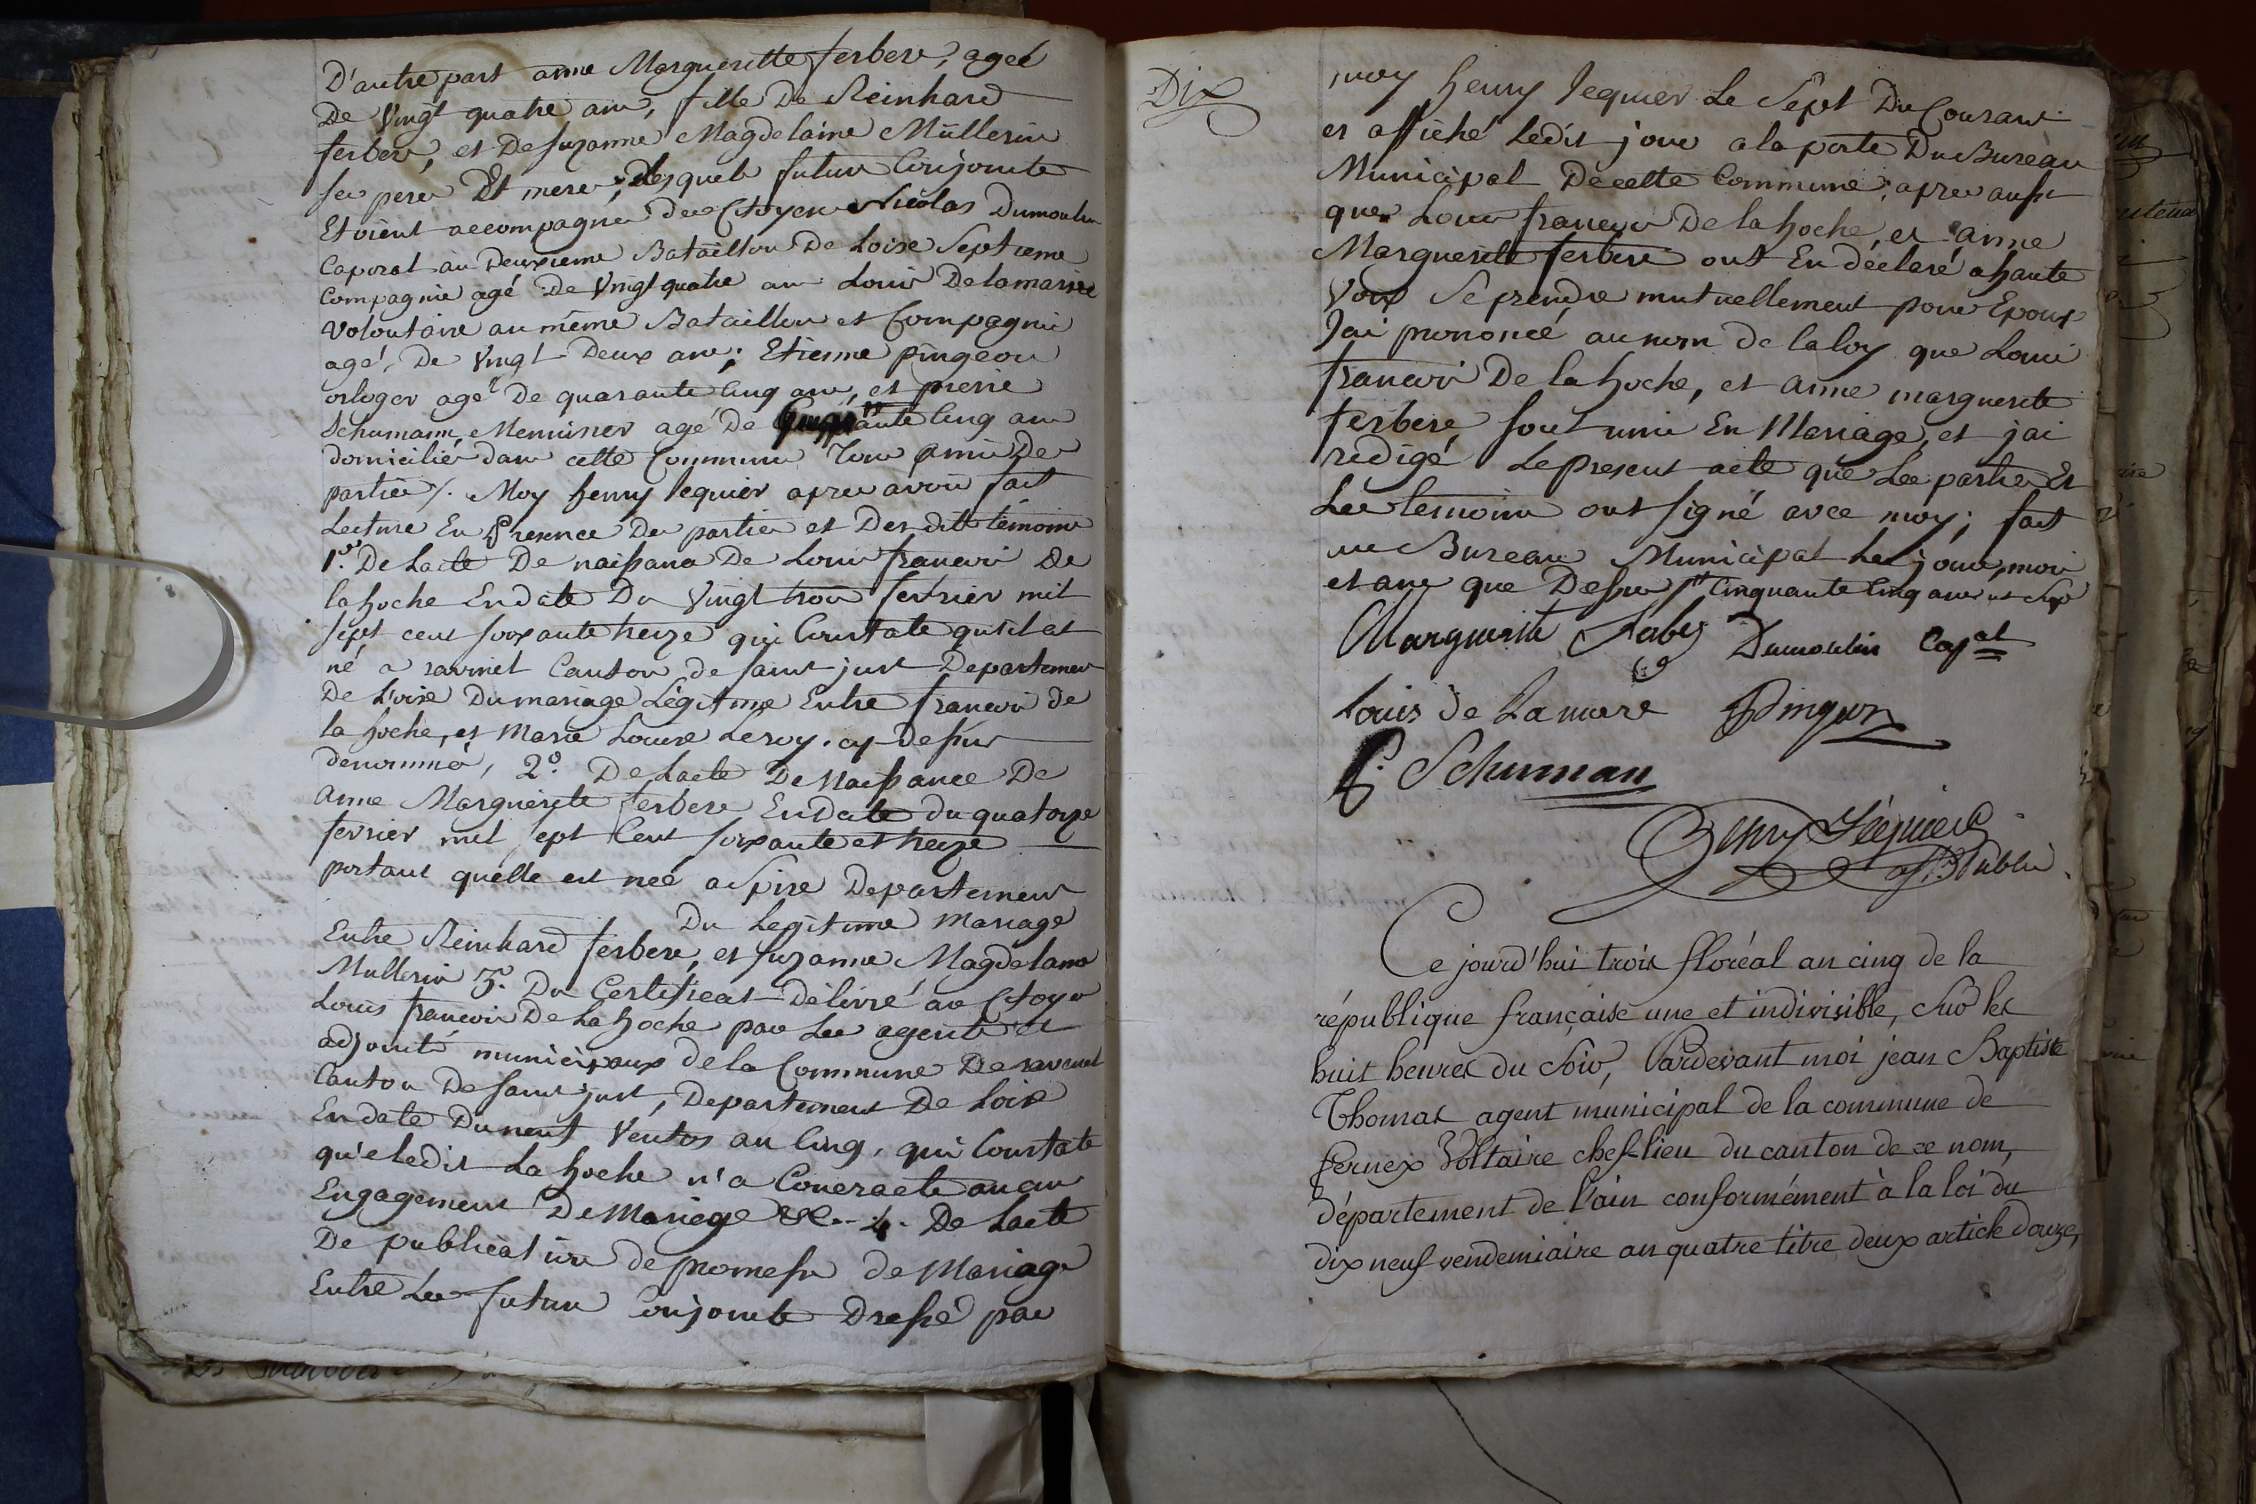 D'autre part anne Marguerette ferbere, ageé
De Vingt quatre ans, fille De Reinhard
ferbere, et De suzanne Magdelaine Müllerin
ses pere Et mere; desquels futurs Conjoints
Etoient accompagnes des Citoyens Nicolas Dumoulin
Caporal au Deuxieme Bataillon De Loise Septieme
Compagnie agé De Vingt quatre ans Louis Delamarre
Volontaire au même Bataillon et Compagnie
agé, De Vingt Deux ans; Etienne pingeon
orloger agé De quarante Cinq ans, et pierre
Schumann Menuisier agé De Cinq ans
domiciliés dans cette Commune Tous amis Des
parties /. Moy henry Jequier apres avoir fait
Lecture En Presence Des parties et Des dits témoins
1º. De Lacte De naissance De Louis francois De
la hoche En date Du Vingt trois fevrier mil
sept cent soixante treize qui Constate qu'il est
né a ravenel Canton de saint just Departement
De L'oise Du mariage Légitime Entre francois de
la hoche, et Marie Louise Leroy. cy dessus
denommé, 2º. De Lacte De Naissance De
Anne Marguerite ferbere En date du quatorze
fevrier mil sept Cent soixante et treize
portant quelle est neé a Spire Departement
Du Legitime Mariage
Entre Reinhard ferbere, et suzanne Magdelana
Mullerin 3º. Du Certificat Délivré au Citoyen
Louis francois De La hoche par Les agents et
adjoints municipaux de la Commune De ravenel
Canton De saint just, Departement De Loise
En date Du neuf Ventos an Cinq, qui Constate
qu'e ledit La hoche n'a Contracté aucun
Engagement De Mariage &c.- 4. De Lacte
De publication de promesse de Mariage
Entre Les futurs Conjoints Dressé par
Dix
moy henry Jequier Le Sept Du Courant
et affiché Ledit jour a la porte Du Bureau
Municipal De cette Commune; apres aussi
que Louis françois De la hoche, et anne
Marguerite ferbere ont En déclaré a haute
Voix Se prendre mutuellement pour Epoux
Jai prononcé au nom de la loy que Louis
francois De la hoche, et anne marguerite
ferbere sont unis En Mariage, et jai
redigé Le present acte que Les parties Et
Les temoins ont signé avec moy; fait
au Bureau Municipal Les jour, mois
et ans que Dessus Cinquante Cinq ans
Marguerite Dumoulin Capal
Louis de Lamare Pingeon
P. Schuman
Henry Jéquier
ag. Public
Ce jourd'hui trois floréal an cinq de la
république française une et indivisible, Sur les
huit heures du Soir, Pardevant moi jean Baptiste
Thomas agent municipal de la commune de
fernex Voltaire chef-lieu du canton de ce nom,
département de l'ain conformément à la loi du
dix neuf vendemiaire an quatre titre deux article douze,